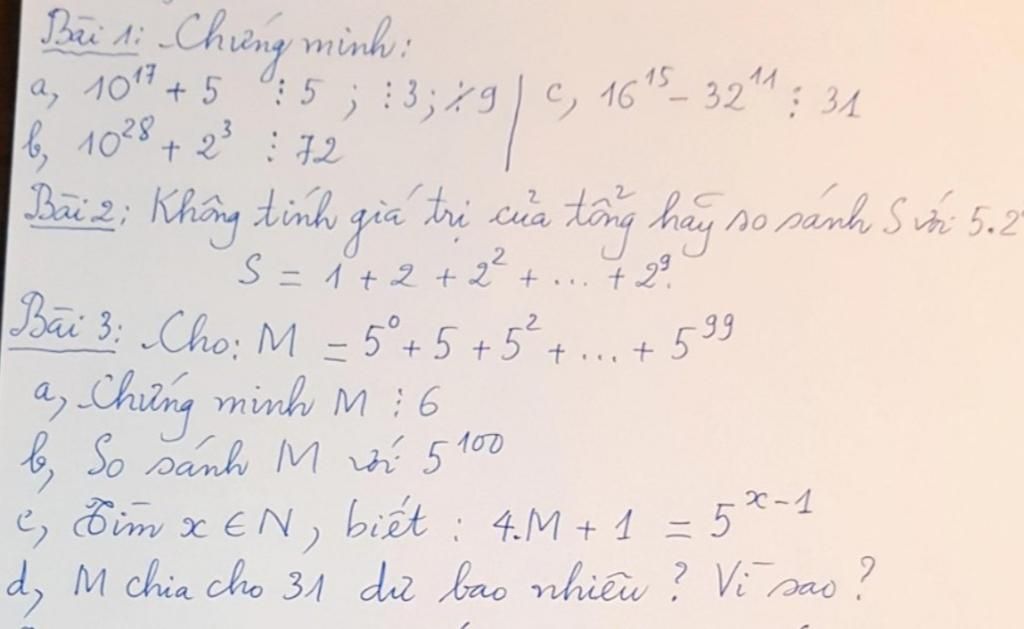 Bài 1: Chứng minh:
a, 10¹⁷ + 5 ⋮ 5 ; ⋮ 3 ; ⋮̸ 9 | c, 16¹⁵ - 32¹¹ ⋮ 31
b, 10²⁸ + 2³ ⋮ 72
Bài 2: Không tính giá trị của tổng hãy so sánh S với 5.2
S = 1 + 2 + 2² + ... + 2⁹.
Bài 3: Cho: M = 5⁰ + 5 + 5² + ... + 5⁹⁹
a, Chứng minh M ⋮ 6
b, So sánh M với 5¹⁰⁰
c, Tìm x ∈ N, biết : 4.M + 1 = 5ˣ⁻¹
d, M chia cho 31 dư bao nhiêu ? Vì sao ?